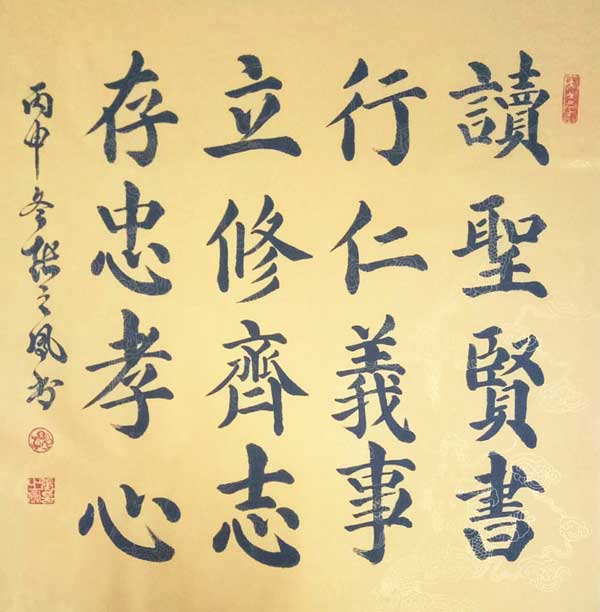 讀聖賢書
行仁義事
立修齊志
存忠孝心
丙申冬之風书